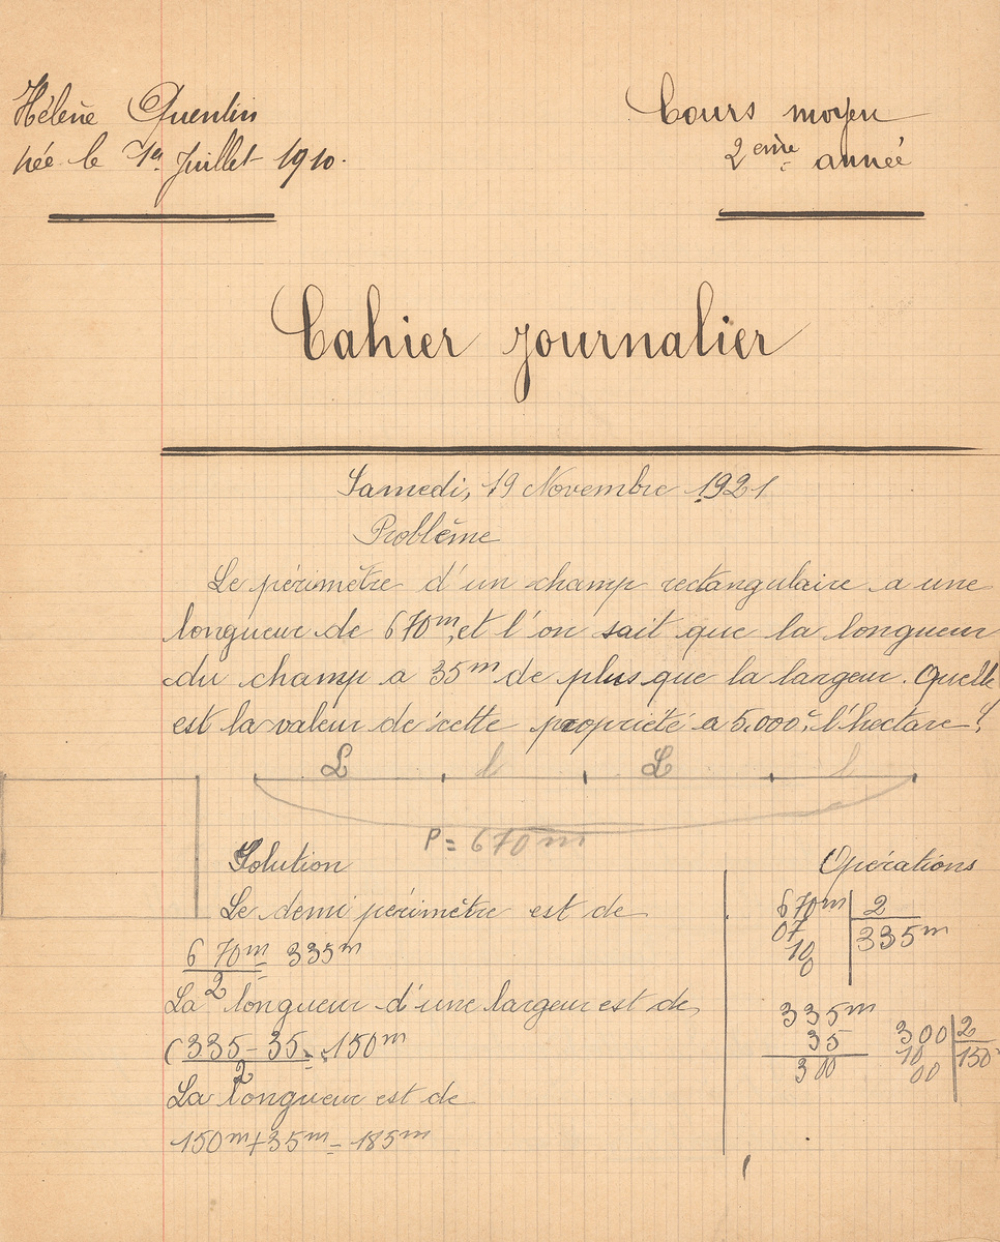 Hélène Quentin
née le 1er Juillet 1910.
Cours moyen
2ème année
Cahier journalier
Samedi, 19 Novembre 1921
Problème
Le périmètre d'un champ rectangulaire a une
longueur de 670m, et l'on sait que la longueur
du champ a 35m de plus que la largeur. Quelle
est la valeur de cette propriété a 5.000f l'hectare?
L l L l
P = 670m
Solution
Le demi périmètre est de
670m/2 = 335m
La longueur d'une largeur est de
(335-35/2 = 150m
La longueur est de
150m+35m = 185m
Opérations
670m 2
07 335m
10
0
335m
35
300
300 2
10 150
00